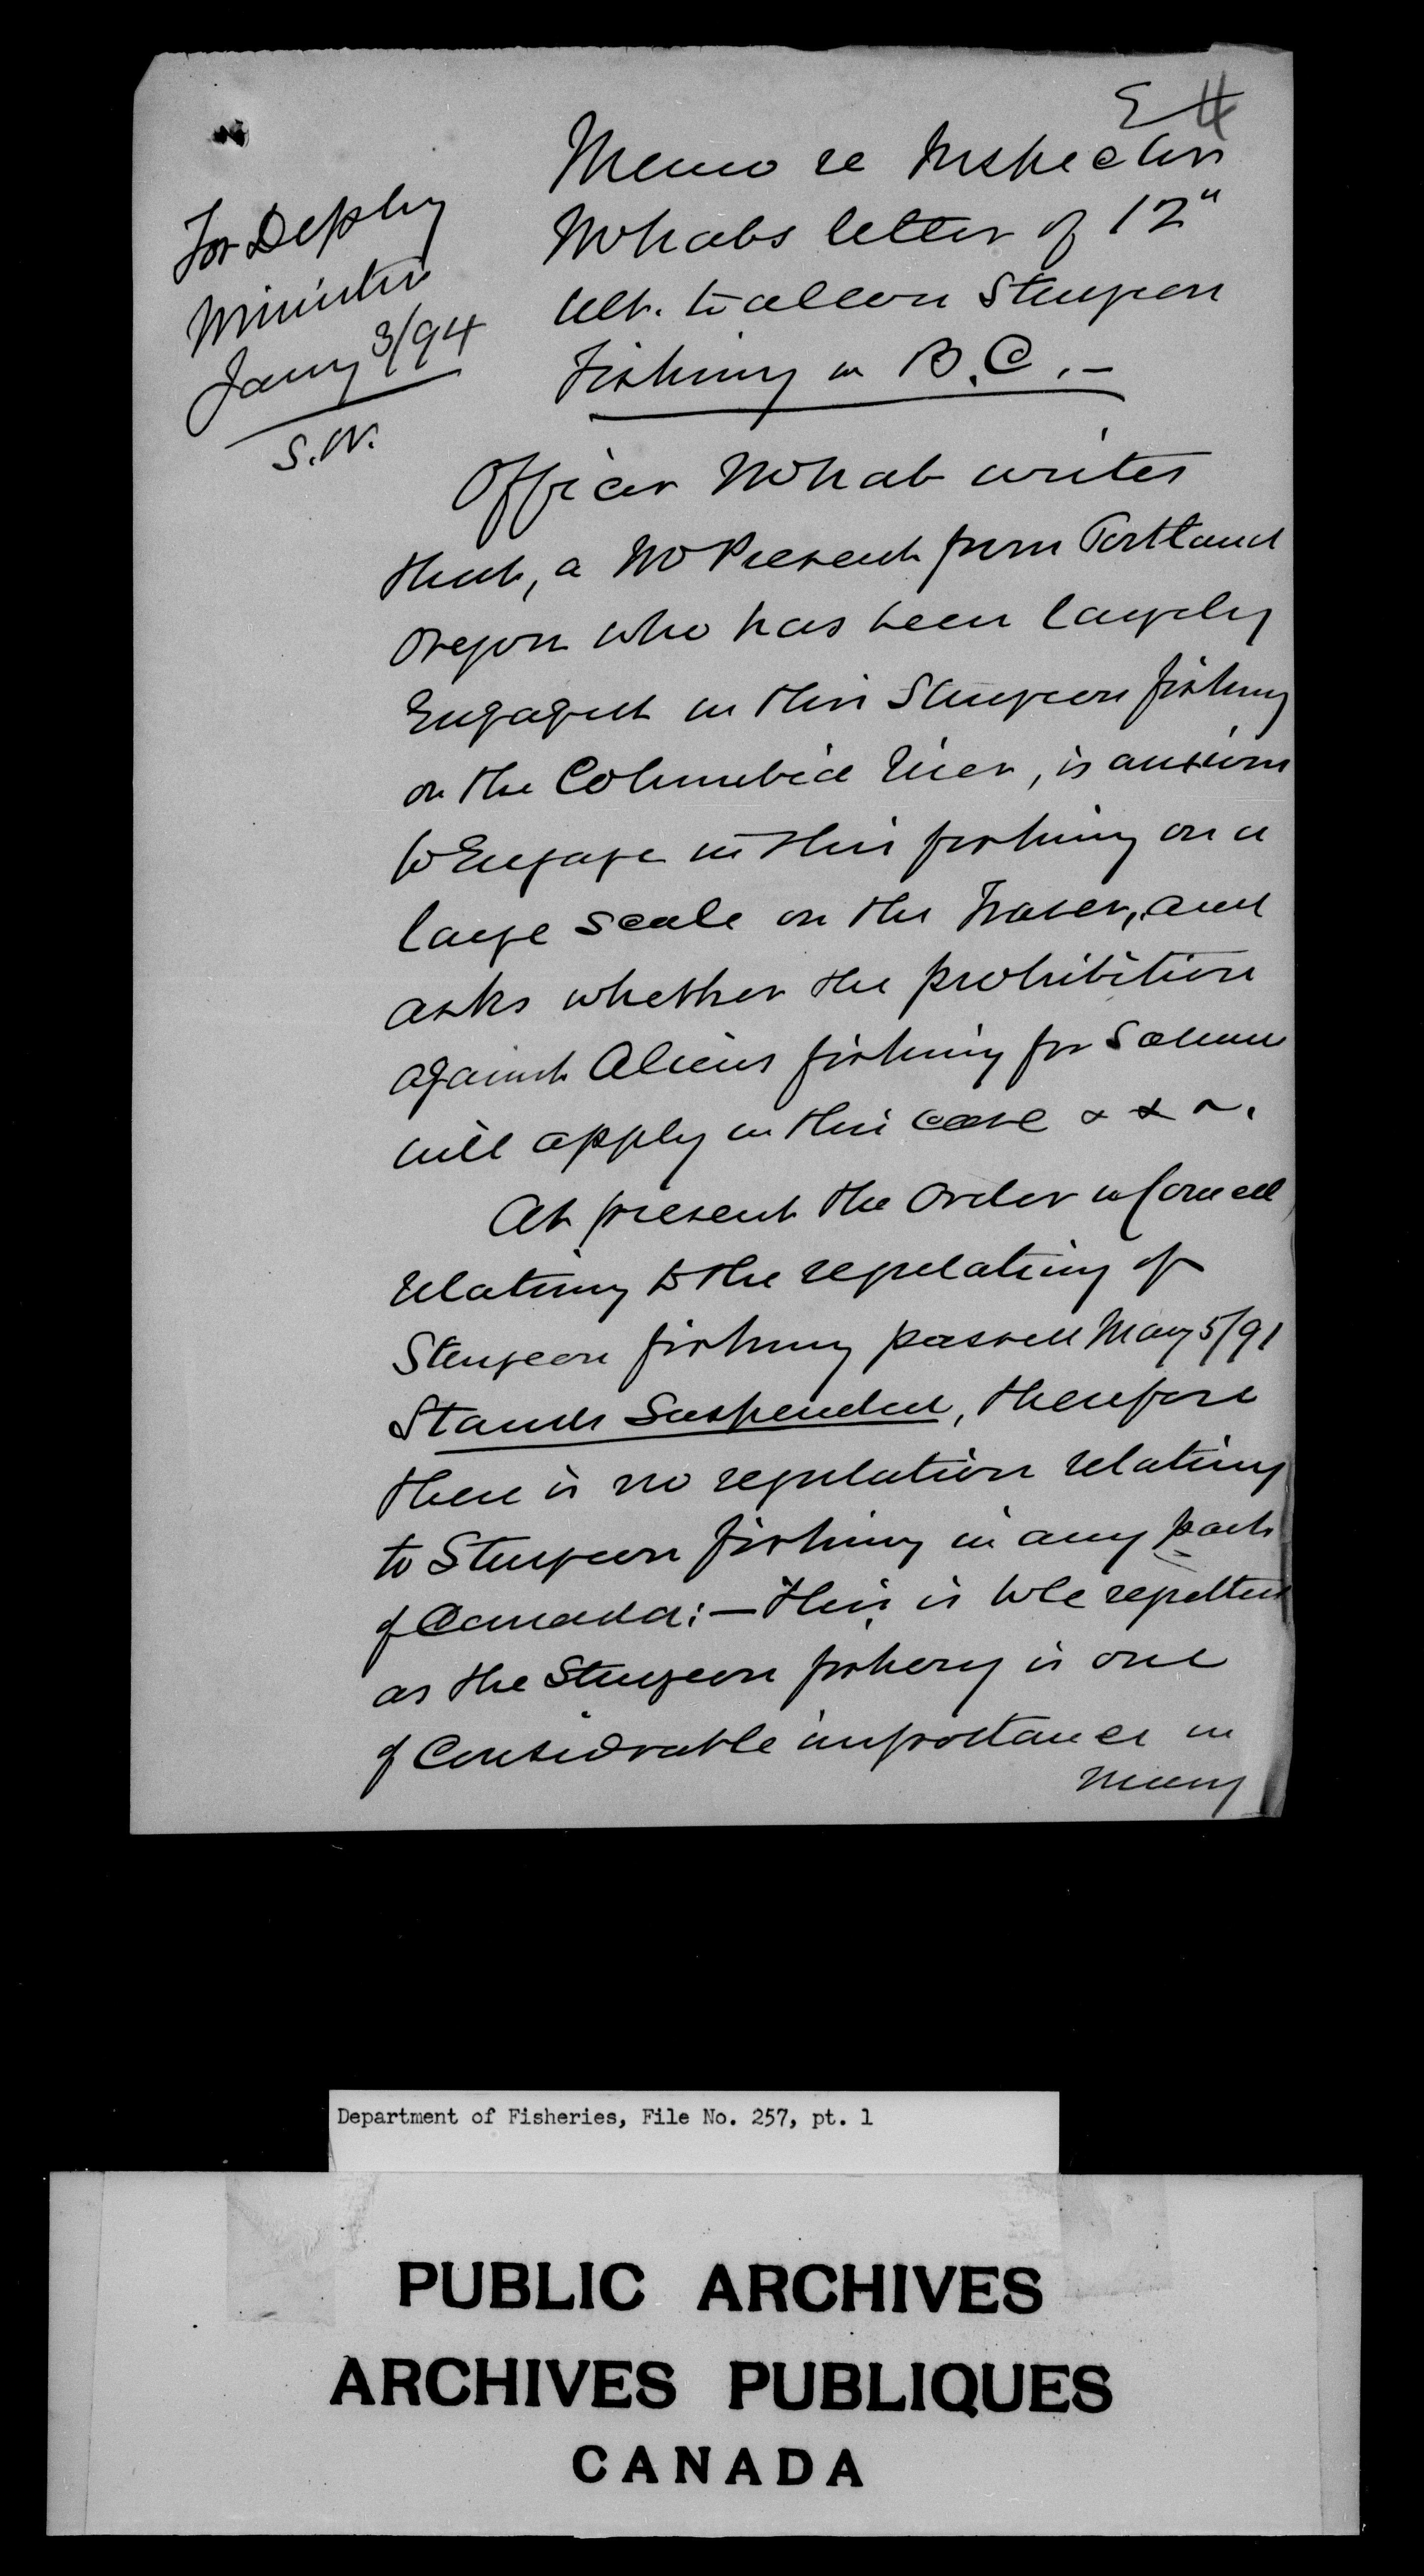 For Deputy
Minister
Jany 3/94
S.W.
Memo re Inspector
McNabs letter of 12"
Ult. to allow Sturgeon
Fishing in B.C. –
Officer McNab writes
that, a Mr from Portland
Oregon who has been largely
Engaged in this Sturgeon fishing
on the Columbia River, is anxious
to Engage in this fishing on a
large scale on the Fraser, and
asks whether the prohibition
against Aliens fishing for Salmon
will apply in this case
At present the Order in Council
relating to the regulating of
Sturgeon fishing passed May 5/91
Stands Suspended, therefore
there is no regulation relating
to Sturgeon fishing in any part
of Canada: – this is to be regretted
as the Sturgeon fishery is one
of Considrable importance in
many
Department of Fisheries, File No. 257, pt. 1
PUBLIC ARCHIVES
ARCHIVES PUBLIQUES
CANADA